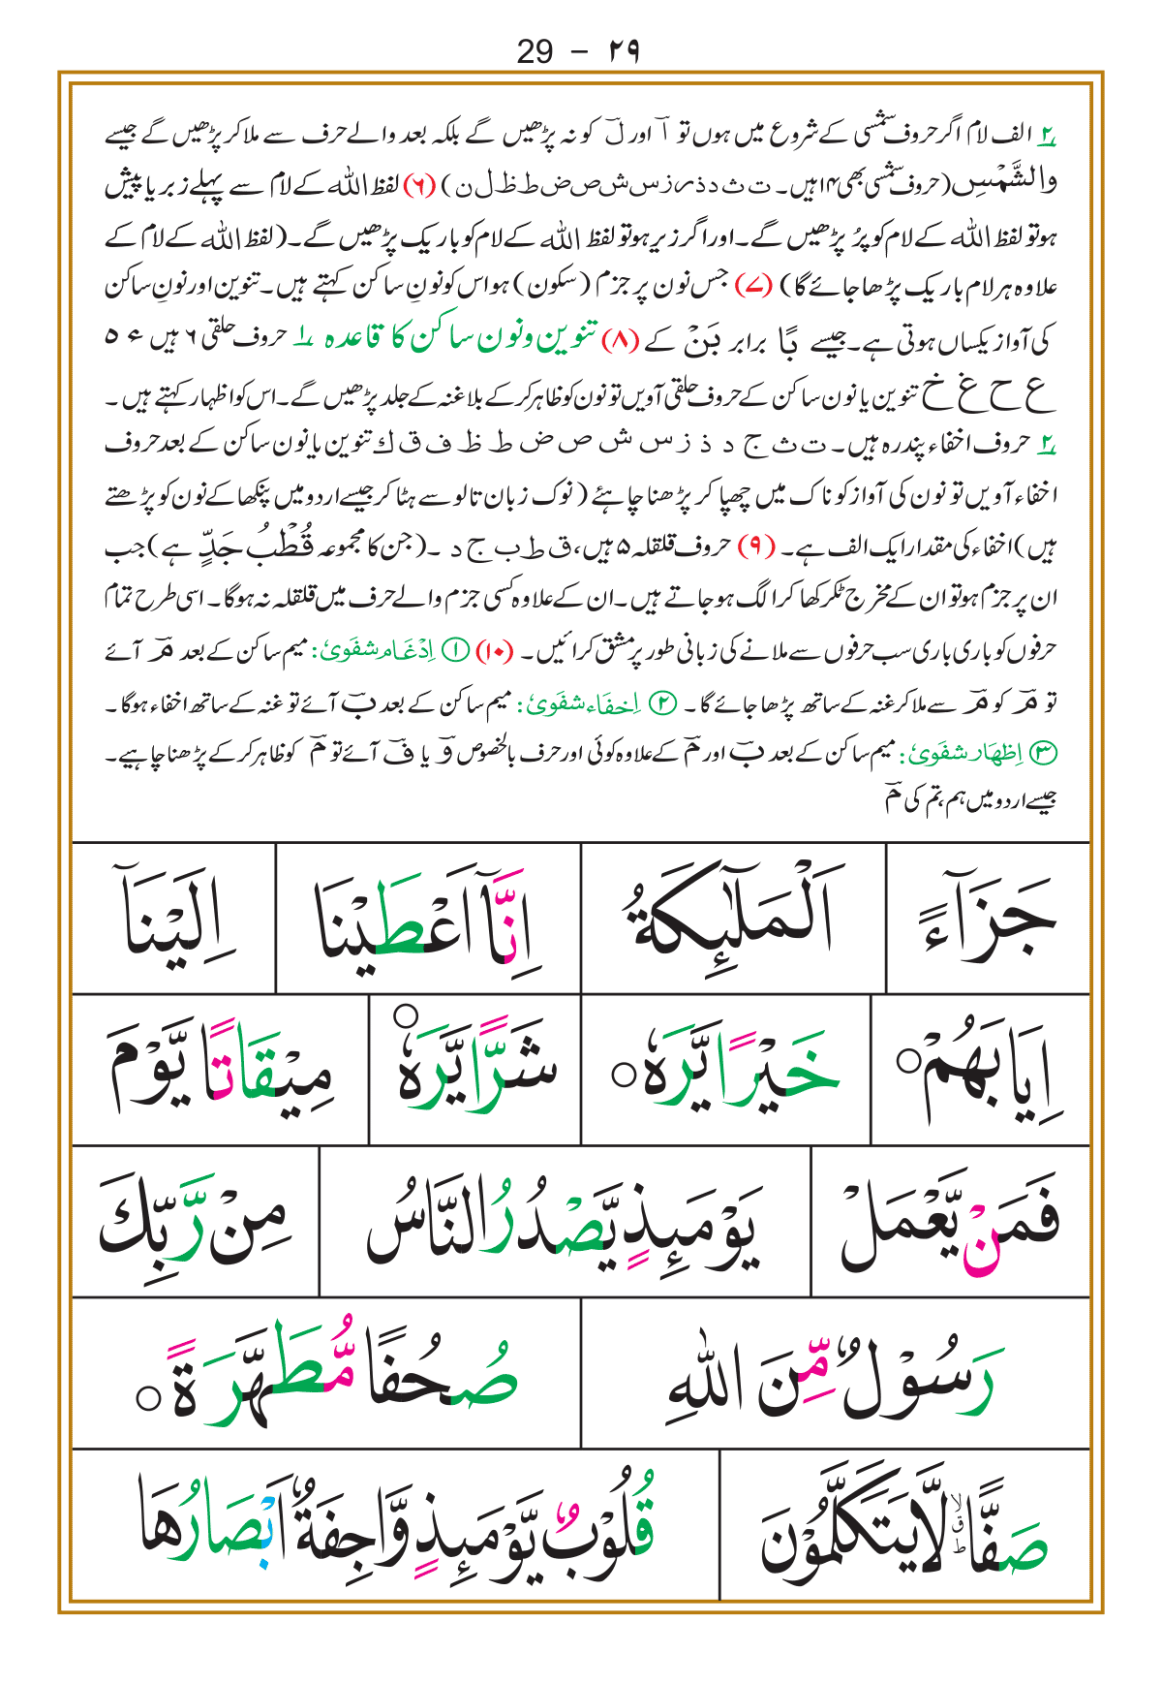 29 – ۲۹
۲؎ الف لام اگر حروف شمسی کے شروع میں ہوں تو آ اور لَ کو نہ پڑھیں گے بلکہ بعد والے حرف سے ملا کر پڑھیں گے جیسے
والشَّمْسِ (حروف شمسی بھی ۱۴ ہیں۔ ت ث د ذ ر ز س ش ص ض ط ظ ل ن) (۶) لفظ اللہ کے لام سے پہلے زبر یا پیش
ہو تو لفظ اللہ کے لام کو پُر پڑھیں گے۔ اور اگر زیر ہو تو لفظ اللہ کے لام کو باریک پڑھیں گے۔ (لفظ اللہ کے لام کے
علاوہ ہر لام باریک پڑھا جائے گا) (۷) جس نون پر جزم (سکون) ہو اس کو نونِ ساکن کہتے ہیں۔ تنوین اور نونِ ساکن
کی آواز یکساں ہوتی ہے۔ جیسے بًا برابر بَنْ کے (۸) تنوین و نون ساکن کا قاعدہ ۱؎ حروف حلقی ۶ ہیں ء ہ
ع ح غ خ تنوین یا نون ساکن کے حروف حلقی آویں تو نون کو ظاہر کر کے بلا غنہ کے جلد پڑھیں گے۔ اس کو اظہار کہتے ہیں۔
۲؎ حروف اخفاء پندرہ ہیں۔ ت ث ج د ذ ز س ش ص ض ط ظ ف ق ك تنوین یا نون ساکن کے بعد حروف
اخفاء آویں تو نون کی آواز کو ناک میں چھپا کر پڑھنا چاہئے (نوک زبان تالو سے ہٹا کر جیسے اردو میں پنکھا کے نون کو پڑھتے
ہیں) اخفاء کی مقدار ایک الف ہے۔ (۹) حروف قلقلہ ۵ ہیں، ق ط ب ج د ۔ (جن کا مجموعہ قُطْبُ جَدٍّ ہے) جب
ان پر جزم ہو تو ان کے مخرج ٹکر کھا کر الگ ہو جاتے ہیں۔ ان کے علاوہ کسی جزم والے حرف میں قلقلہ نہ ہوگا۔ اسی طرح تمام
حرفوں کو باری باری سب حرفوں سے ملانے کی زبانی طور پر مشق کرائیں۔ (۱۰) ① اِدْغَام شفَوِیْ: میم ساکن کے بعد مَ آئے
تو مَ کو مَ سے ملا کر غنہ کے ساتھ پڑھا جائے گا۔ ② اِخفَاء شفَوِیْ: میم ساکن کے بعد بَ آئے تو غنہ کے ساتھ اخفاء ہوگا۔
③ اِظهَار شفَوِیْ: میم ساکن کے بعد بَ اور مَ کے علاوہ کوئی اور حرف بالخصوص وَ یا فَ آئے تو مَ کو ظاہر کر کے پڑھنا چاہیے۔
جیسے اردو میں ہم، تم کی مَ
جَزَآءً اَلْمَلٰٓئِكَةُ اِنَّآ اَعْطَيْنَا اِلَيْنَآ
اِيَابَهُمْ ○ خَيْرًا يَّرَهٗ ○ شَرًّا يَّرَهٗ ○ مِيْقَاتًا يَّوْمَ
فَمَنْ يَّعْمَلْ يَوْمَئِذٍ يَّصْدُرُ النَّاسُ مِنْ رَّبِّكَ
رَسُوْلٌ مِّنَ اللّٰهِ صُحُفًا مُّطَهَّرَةً ○
صَفًّا ۙ لَّا يَتَكَلَّمُوْنَ قُلُوْبٌ يَّوْمَئِذٍ وَّاجِفَةٌ اَبْصَارُهَا